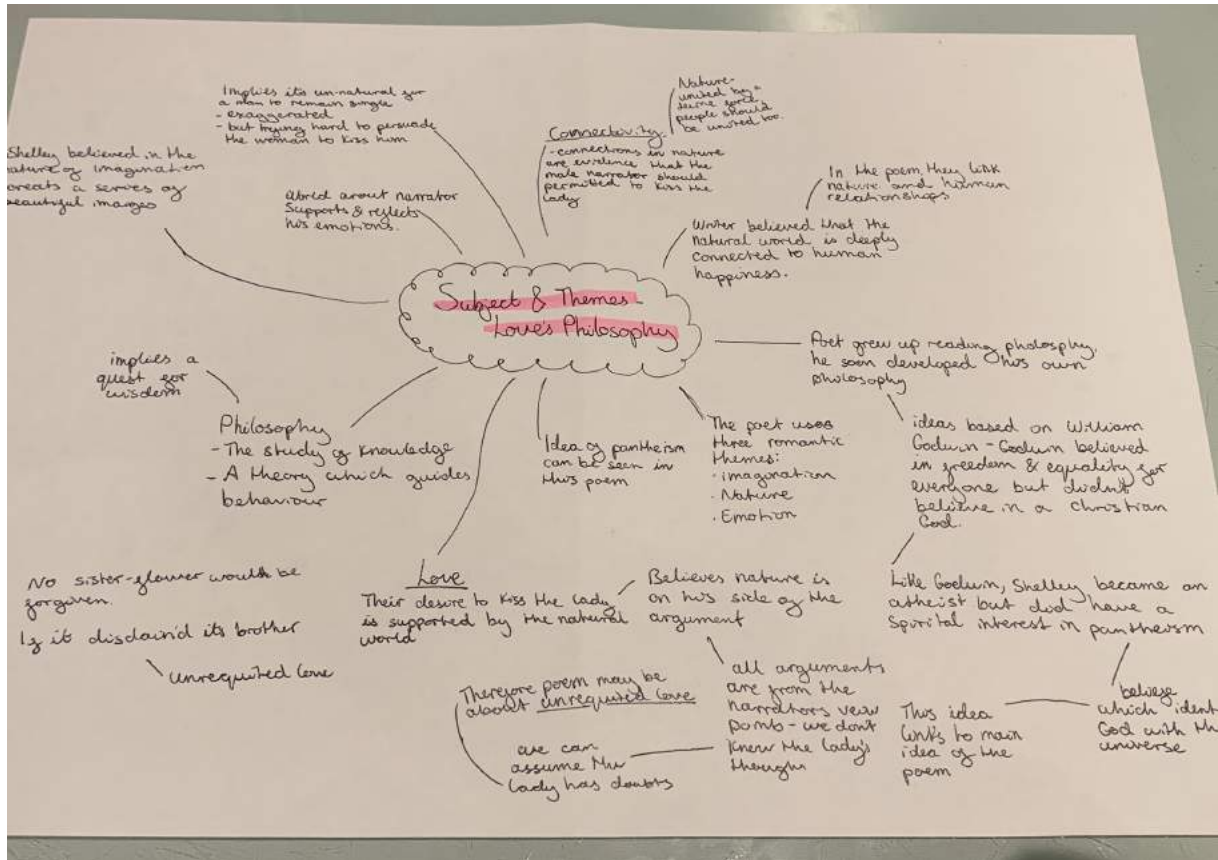 Subject & Themes -
Love's Philosophy
Implies its un-natural for
a man to remain single
- exaggerated
- but trying hard to persuade
the woman to kiss him
Shelley believed in the
nature of imagination
creats a serves of
beautiful imarges
World arout narrator
Supports & reflects
his emotions.
Connectivity.
- connections in nature
are evidence that the
male narrator should
permitted to kiss the
lady
Nature-
united by a
force
people should
be united too.
In the poem, they link
nature and human
relationshops
Writer believed that the
natural world is deeply
connected to human
happiness.
Poet grew up reading pholosphy.
he soon developed his own
philosophy
ideas based on William
Godwin - Godwin believed
in freedom & equality for
everyone but didn't
believe in a christian
God.
Like Godwin, Shelley became an
atheist but did have a
Spirital interest in pantheism
believe
which ident
God with th
universe
This idea
links to main
idea of the
poem
The poet uses
three romantic
themes:
· imagonation
· Nature
· Emotion
Idea of pantheism
can be seen in
this poem
implies a
quest for
wisdom
Philosophy
- The study of knowledge
- A theory which guides
behaviour
Love
Their desire to kiss the lady
is supported by the natural
world
Believes nature is
on his side of the
argument
all arguments
are from the
narrators veiw
point - we don't
know the lady's
though
we can
assume the
lady has doubts
Therefore poem may be
about unrequited love
No sister-flower would be
forgiven.
If it disdain'd its brother
unrequited love